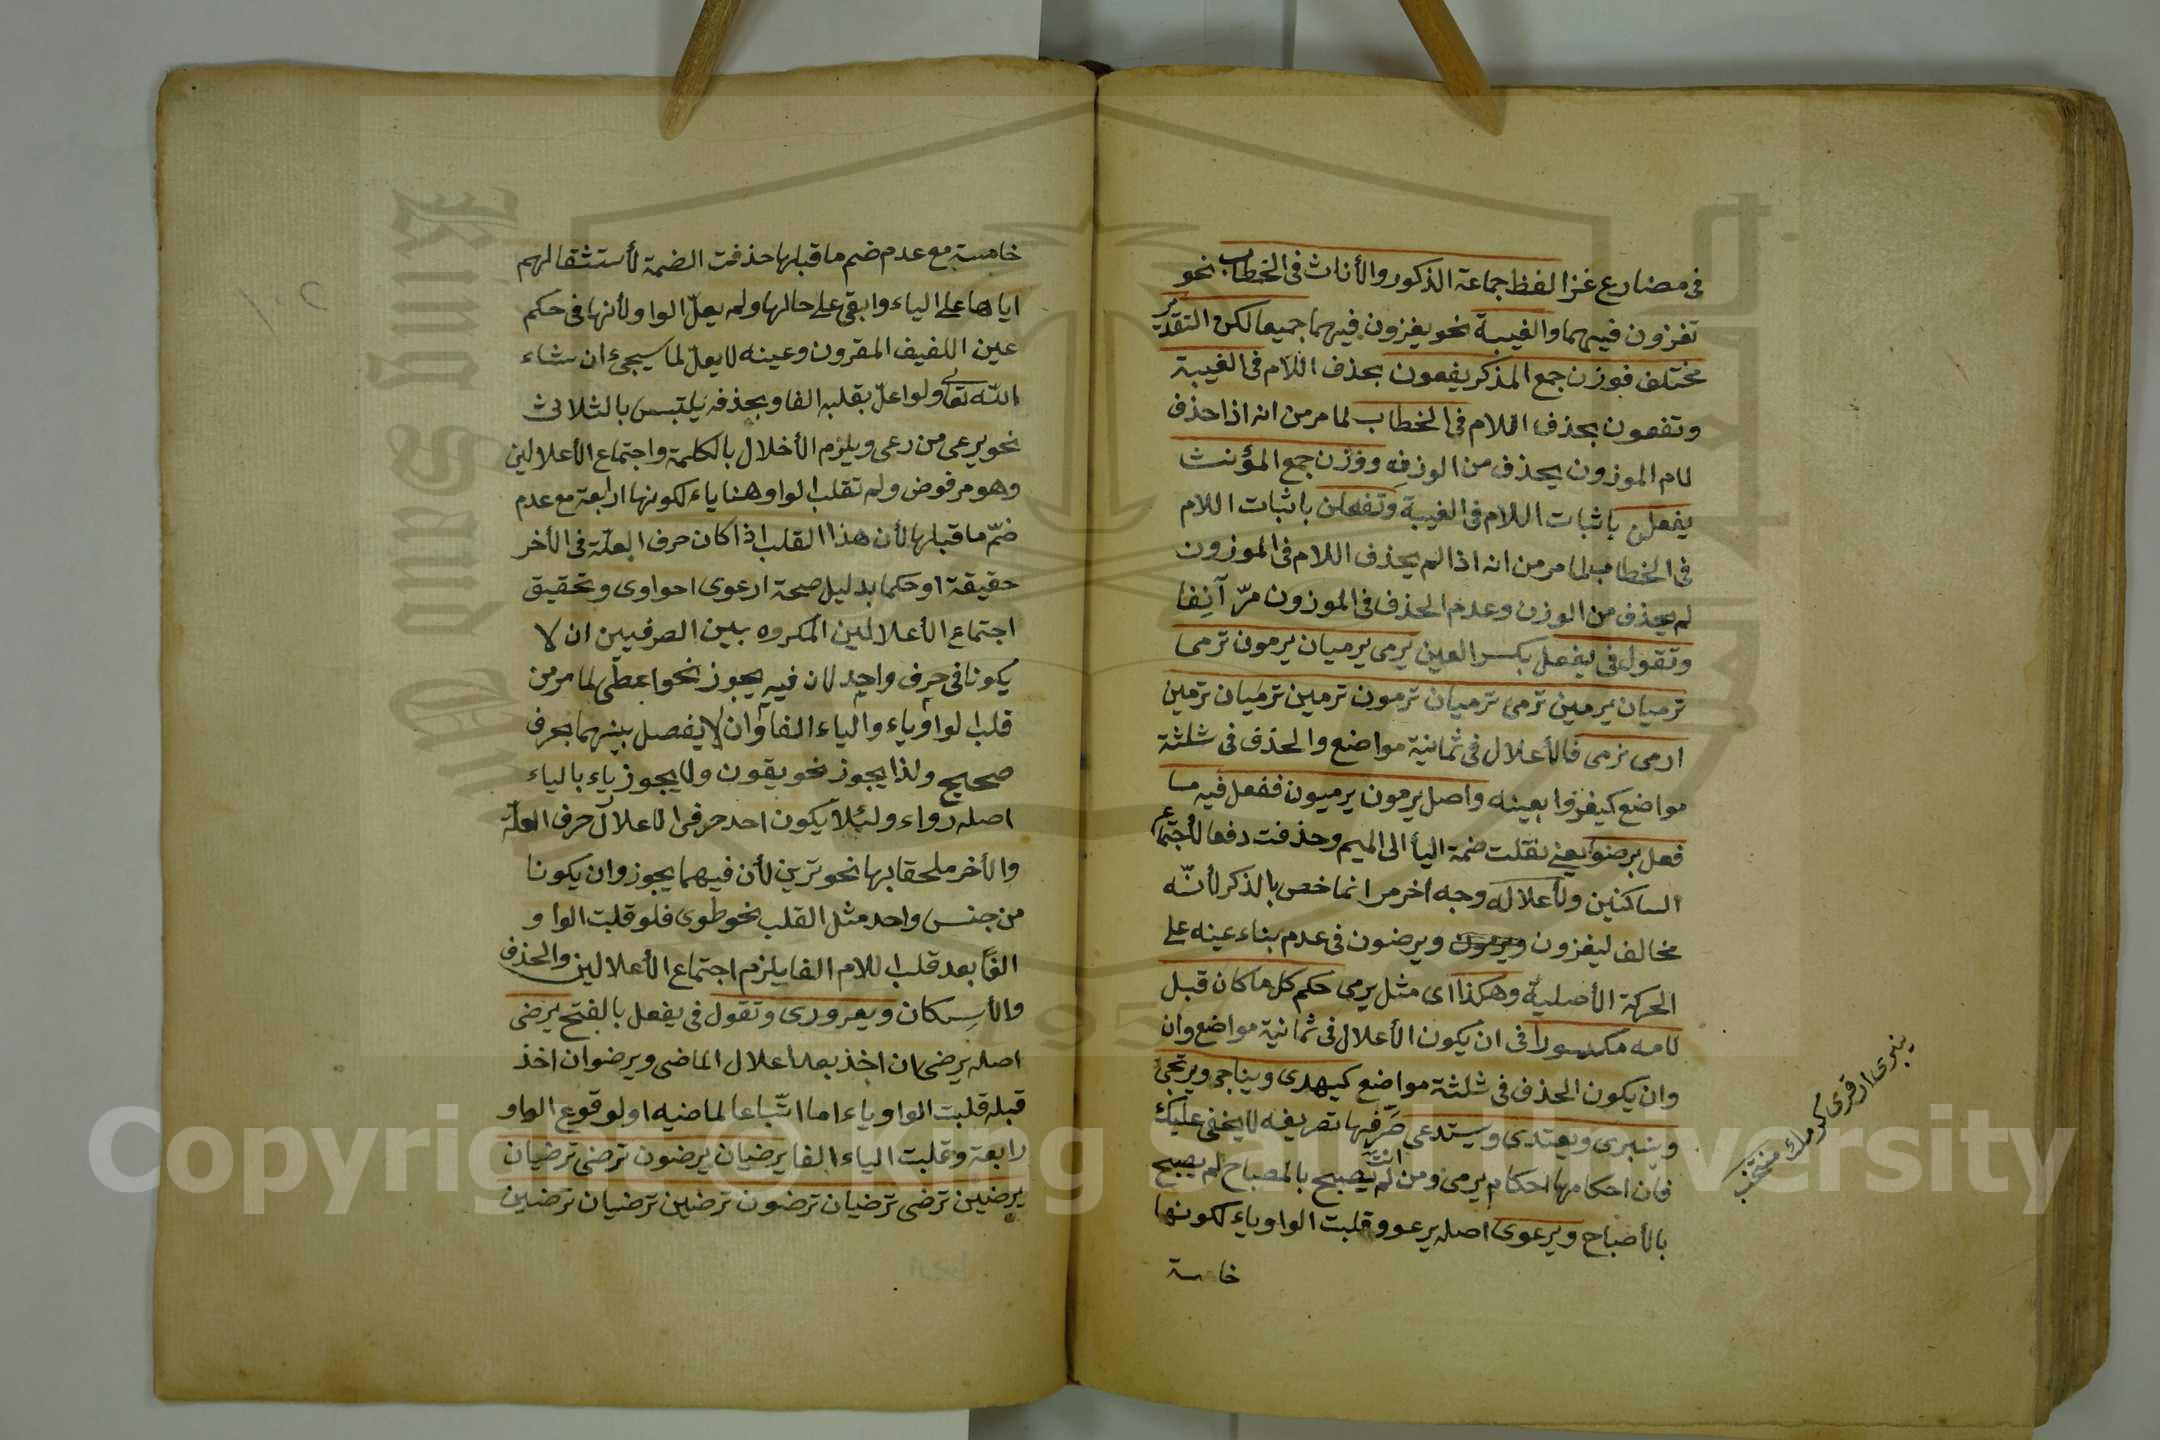 في مضارع غزا لفظ جماعة الذكور والأناث في الخطاب نحو
تغزون فيهما والغيبة نحو يغزون فيهما جميعا لكن التقدير
مختلف فوزن جمع المذكر يفعون بحذف اللام في الغيبة
وتفعون بحذف اللام في الخطاب لما مر من انه اذا حذف
لام الموزون يحذف من الوزن ووزن جمع المؤنث
يفعلن باثبات اللام في الغيبة وتفعلن باثبات اللام
في الخطاب لما مر من انه اذا لم يحذف اللام في الموزون
لم يحذف من الوزن وعدم الحذف في الموزون مرّ آنفا
وتقول في يفعل بكسر العين يرمى يرميان يرمون ترمى
ترميان يرمين ترمى ترميان ترمون ترمين ترميان ترمين
ارمى نرمى فالأعلال في ثمانية مواضع والحذف في ثلثة
مواضع كيغزوا بعينه واصل يرمون يرميون ففعل فيه ما
فعل برضوا يعنى نقلت ضمة اليأ الى الميم وحذفت دفعا لأجتماع
الساكنين ولأعلاله وجه اخر مر انما خص بالذكر لأنّه
مخالف ليغزون ويرضون في عدم بناء عينه على
الحركة الأصلية وهكذا اى مثل يرمى حكم كل ما كان قبل
لامه مكسورا في ان يكون الأعلال في ثمانية مواضع وان
وان يكون الحذف في ثلثة مواضع كيهدى ويناجى ويرتجى
وينبرى ويعتدى ويستدعى صَرِّفها تصريفه لا يخفى عليك
فان احكامها احكام يرمى ومن لم يصبح بالمصباح لم يصبح
بالأصباح ويرعوى اصله يرعوو قلبت الواو ياء لكونها
خامسة
خامسة مع عدم ضم ما قبلها حذفت الضمة لأستثقالهم
اياها على الياء وابقى على حالها ولم يعلّ الواو لأنها في حكم
عين اللفيف المقرون وعينه لا يعلّ لما سيجئ ان شاء
الله تعالى ولو اعلّ بقلبه الفا وبحذفه يلتبس بالثلاثى
نحو يرعى من رعى ويلزم الأخلال بالكلمة واجتماع الأعلالين
وهو مرفوض ولم تقلب الواو هنا ياء لكونها رابعة مع عدم
ضمّ ما قبلها لأن هذا القلب اذا كان حرف العلّة في الأخر
حقيقة او حكما بدليل صحة ارعوى احواوى وتحقيق
اجتماع الأعلالين المكروه بين الصرفيين ان لا
يكونا في حرف واحد لان فيه يجوز نحو اعطى لما مر من
قلب الواو ياء والياء الفا وان لا يفصل بينهما بحرف
صحيح ولذا يجوز نحو يقون ولا يجوز ياء بالياء
اصله رواء ولئلا يكون احد حرفى الاعلال حرف العلّة
والأخر ملحقا بها نحو ترين لأن فيهما يجوز وان يكونا
من جنس واحد مثل القلب نحو طوى فلو قلبت الواو
الفاً بعد قلب اللام الفا يلزم اجتماع الأعلالين والحذف
والأسكان ويعرورى وتقول في يفعل بالفتح يرضى
اصله يرضى ان اخذ بعد اعلال الماضى ويرضو ان اخذ
قبله قلبت الواو ياء اما اتّباعا لماضيه او لوقوع الواو
رابعة وقلبت الياء الفا يرضيان يرضون ترضى ترضيان
يرضين ترضى ترضيان ترضون ترضين ترضيان ترضين
Copyright © King Saud University
King Saud University
1957